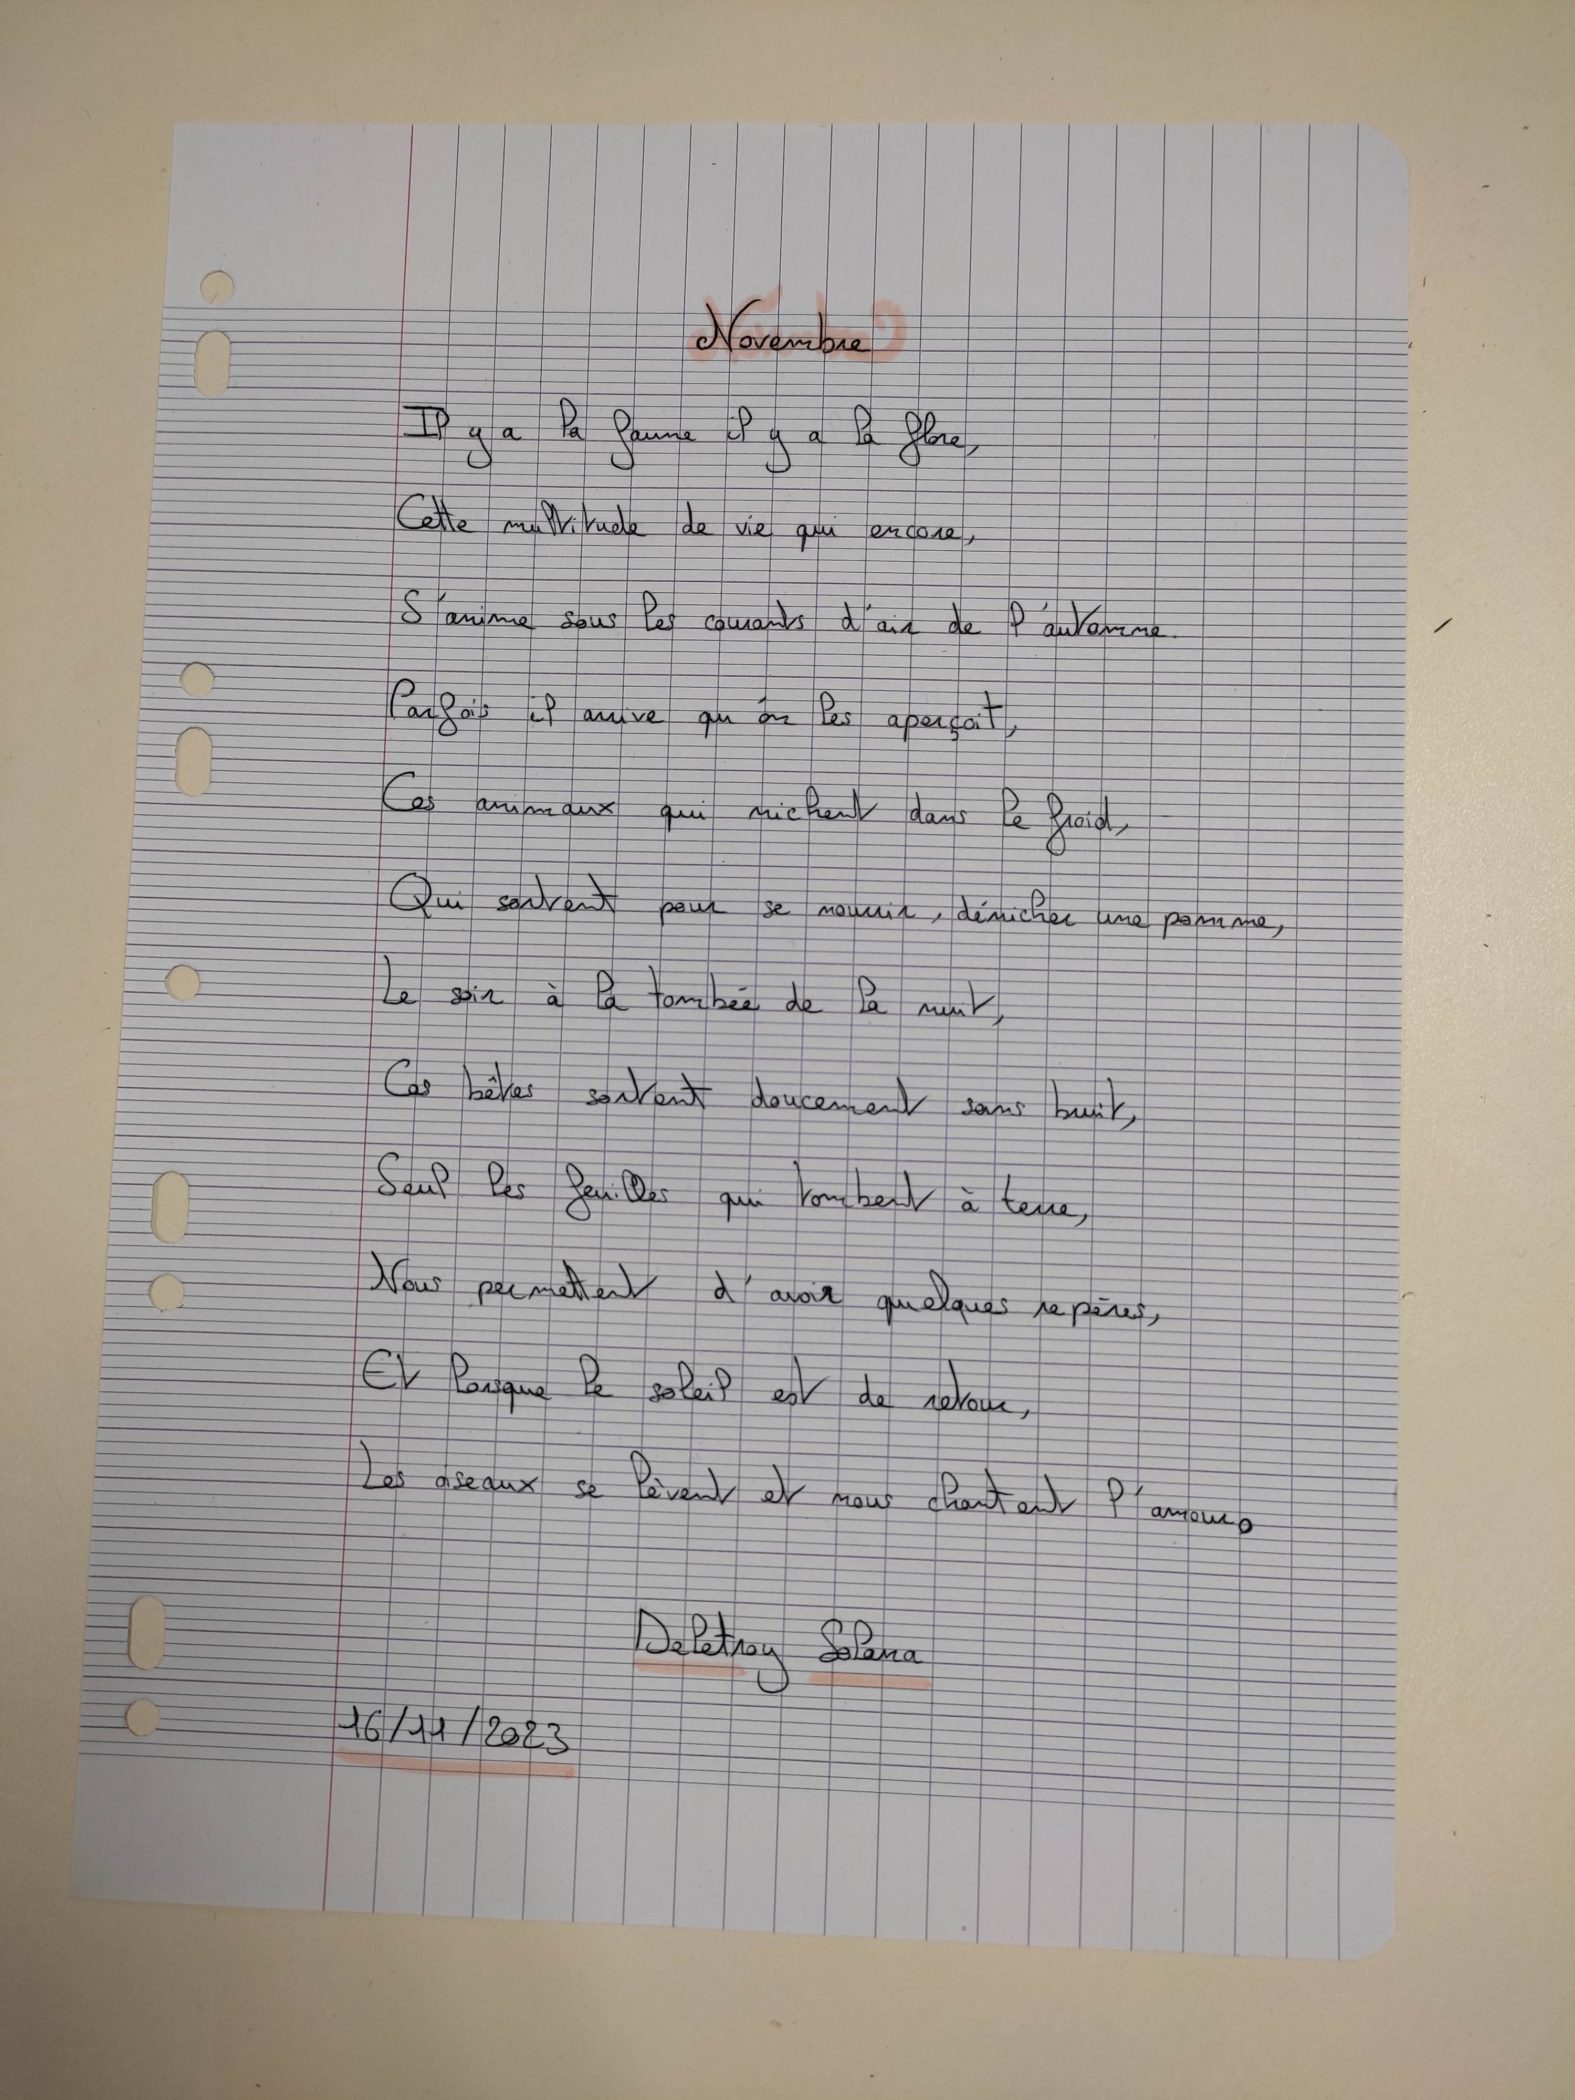 Novembre
Il y a la faune il y a la flore,
Cette multitude de vie qui encore,
S'anime sous les courants d'air de l'automne.
Parfois il arrive qu'on les aperçoit,
Ces animaux qui nichent dans le froid,
Qui sortent pour se nourrir, dénicher une pomme,
Le soir à la tombée de la nuit,
Ces bêtes sortent doucement sans bruit,
Seul les feuilles qui tombent à terre,
Nous permettent d'avoir quelques repères,
Et lorsque le soleil est de retour,
Les oiseaux se lèvent et nous chantent l'amour.
Deletroy Solana
16/11/2023